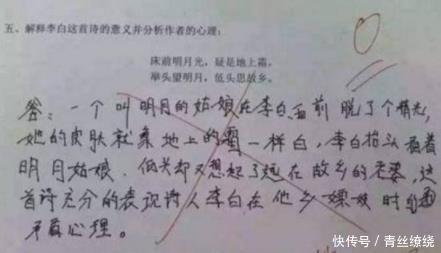 五、解释李白这首诗的意义并分析作者的心理:
床前明月光，疑是地上霜，
举头望明月，低头思故乡。
0
答：一个叫明月的姑娘在李白面前脱了个精光，
她的皮肤就象地上的霜一样白，李白抬头看着
明月姑娘，低头却又想起了远在故乡的老婆，这
首诗充分的表现诗人李白在他乡嫖妓时的
矛盾心理。
快传号／青丝缭绕